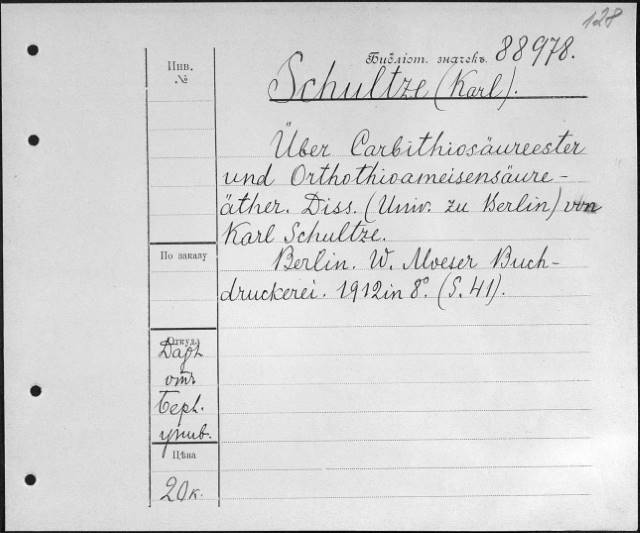 128
Библіот. значекъ. 88978.
Инв.
№
Schultze (Karl).
Über Carbithiosäureester
und Orthothioameisensäure-
äther. Diss. (Univ. zu Berlin) von
Karl Schultze.
По заказу
Berlin. W. Moeser Buch-
druckerei. 1912 in 8°. (S. 41).
Откуда
Даръ
отъ
Берл.
унив.
Цѣна
20 к.